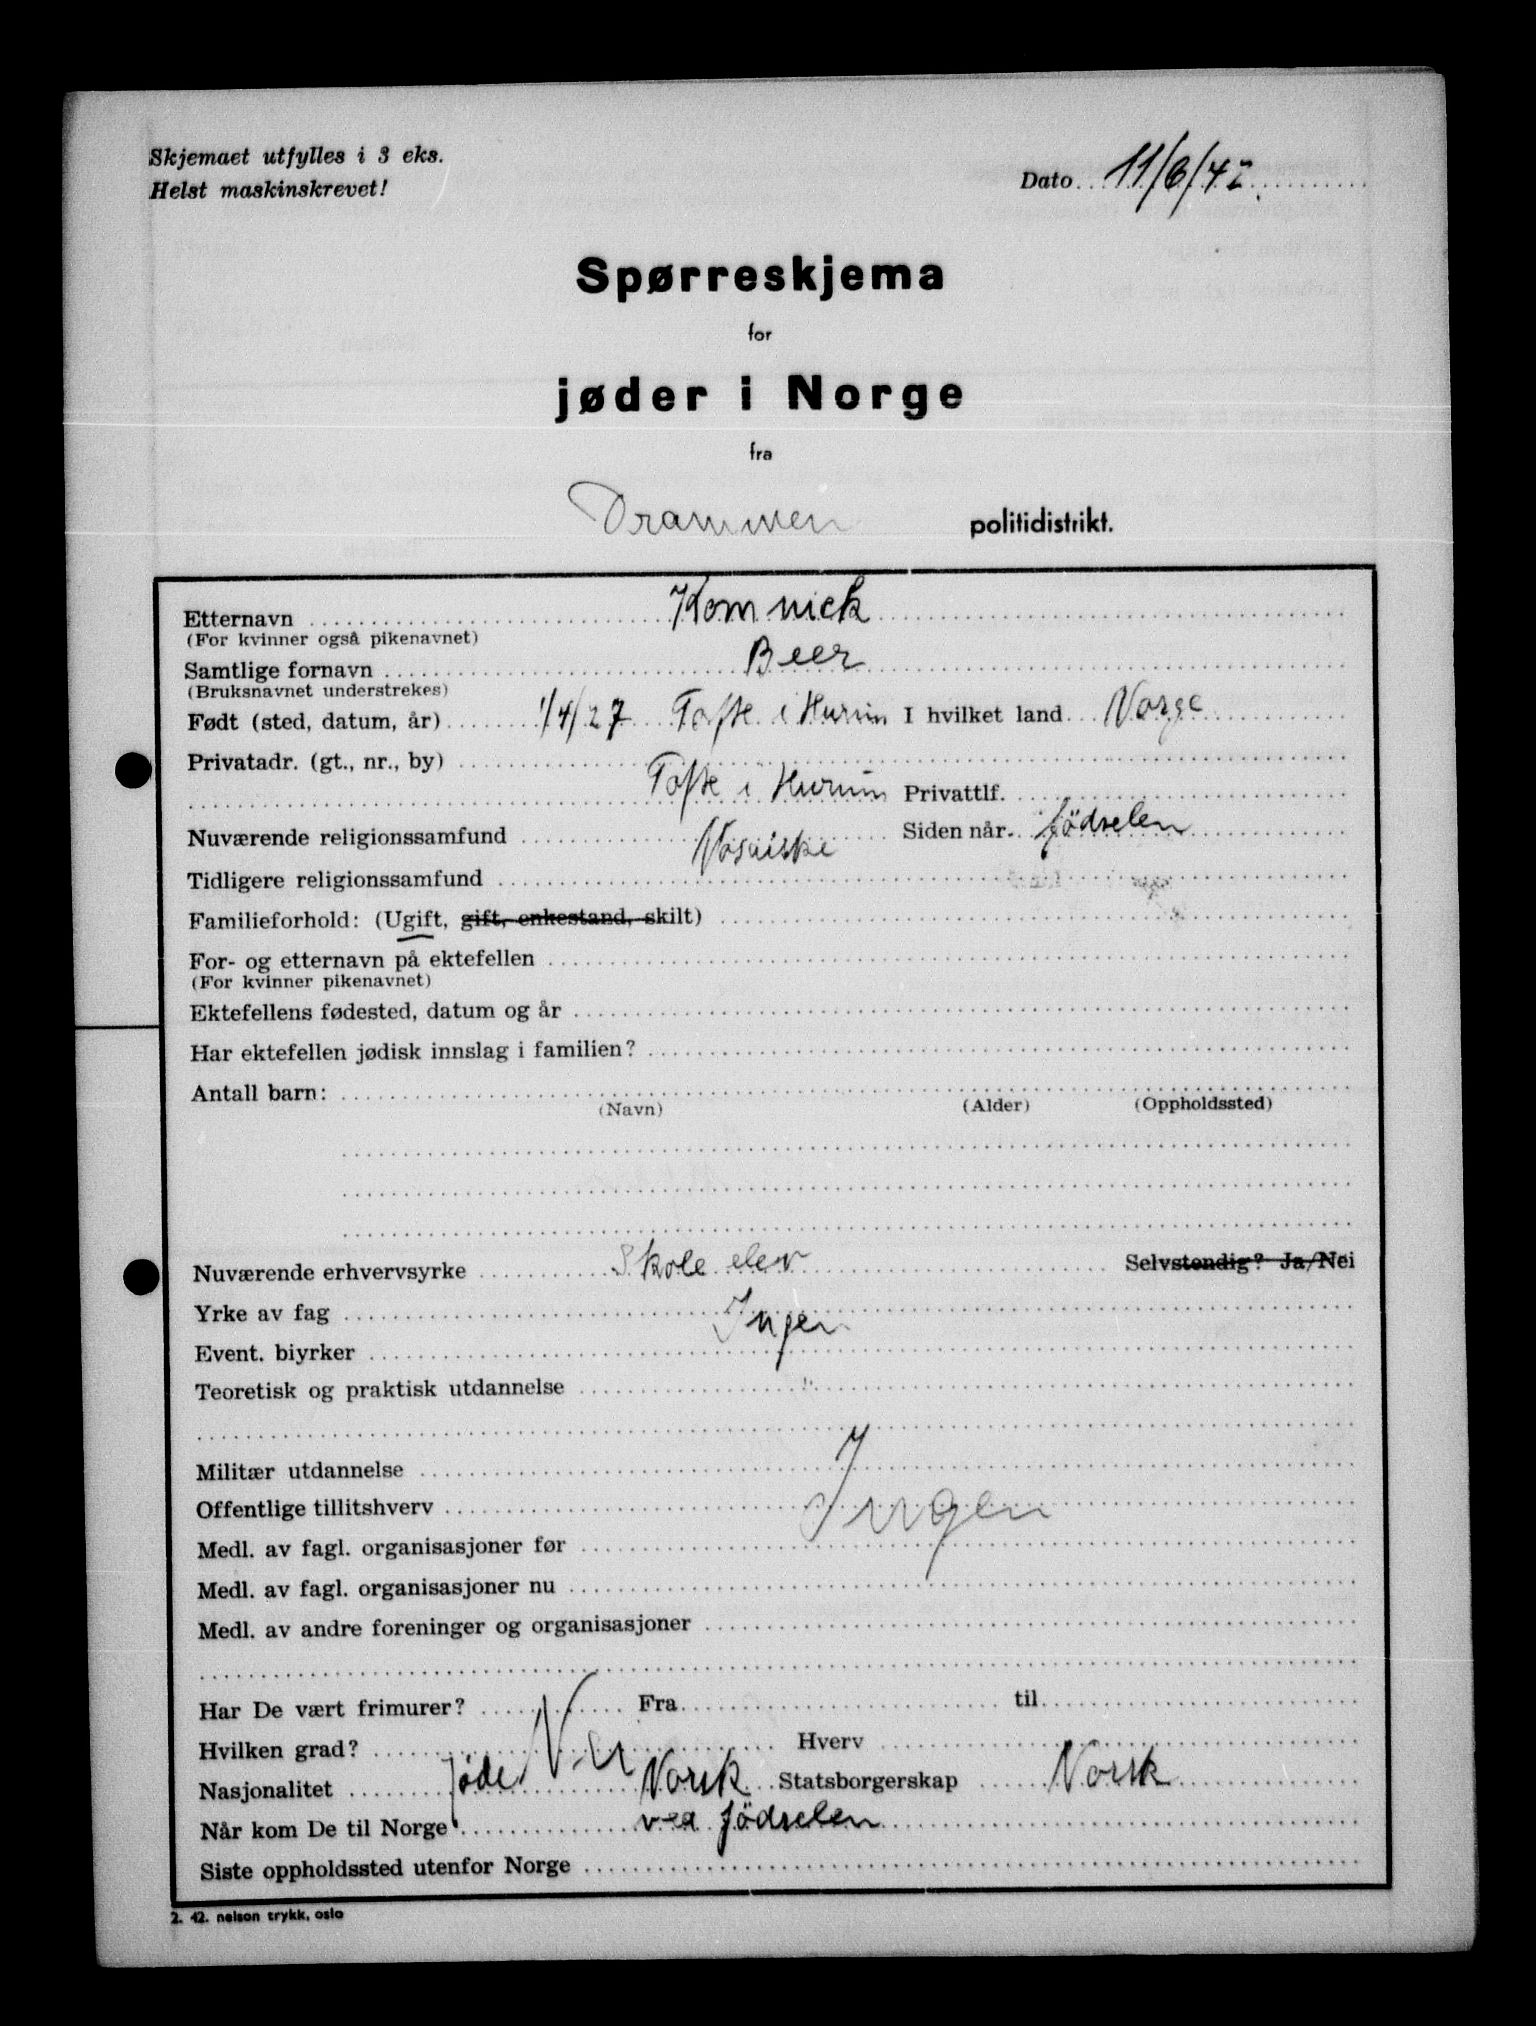 Skjemaet utfylles i 3 eks.
Helst maskinskrevet!
Dato 11/6/42.
Spørreskjema
for
jøder i Norge
fra
Drammen politidistrikt.
Etternavn Komnick
(For kvinner også pikenavnet)
Samtlige fornavn Beer
(Bruksnavnet understrekes)
Født (sted, datum, år) 1/4/27 Tofte i Hurum I hvilket land Norge
Privatadr. (gt., nr., by)
Tofte i Hurum Privattlf.
Nuværende religionssamfund Mosaiske Siden når fødselen
Tidligere religionssamfund
Familieforhold: (Ugift, gift, enkestand, skilt)
For- og etternavn på ektefellen
(For kvinner pikenavnet)
Ektefellens fødested, datum og år
Har ektefellen jødisk innslag i familien?
Antall barn:
(Navn) (Alder) (Oppholdssted)
Nuværende erhvervsyrke Skole elev Selvstendig? Ja/Nei
Yrke av fag Ingen
Event. biyrker
Teoretisk og praktisk utdannelse "
Militær utdannelse
Offentlige tillitshverv Ingen
Medl. av fagl. organisasjoner før
Medl. av fagl. organisasjoner nu
Medl. av andre foreninger og organisasjoner
Har De vært frimurer? Nei Fra til
Hvilken grad? Hverv
Nasjonalitet jøde Norsk Statsborgerskap Norsk
Når kom De til Norge ved fødselen
Siste oppholdssted utenfor Norge
2. 42. nelson trykk, oslo